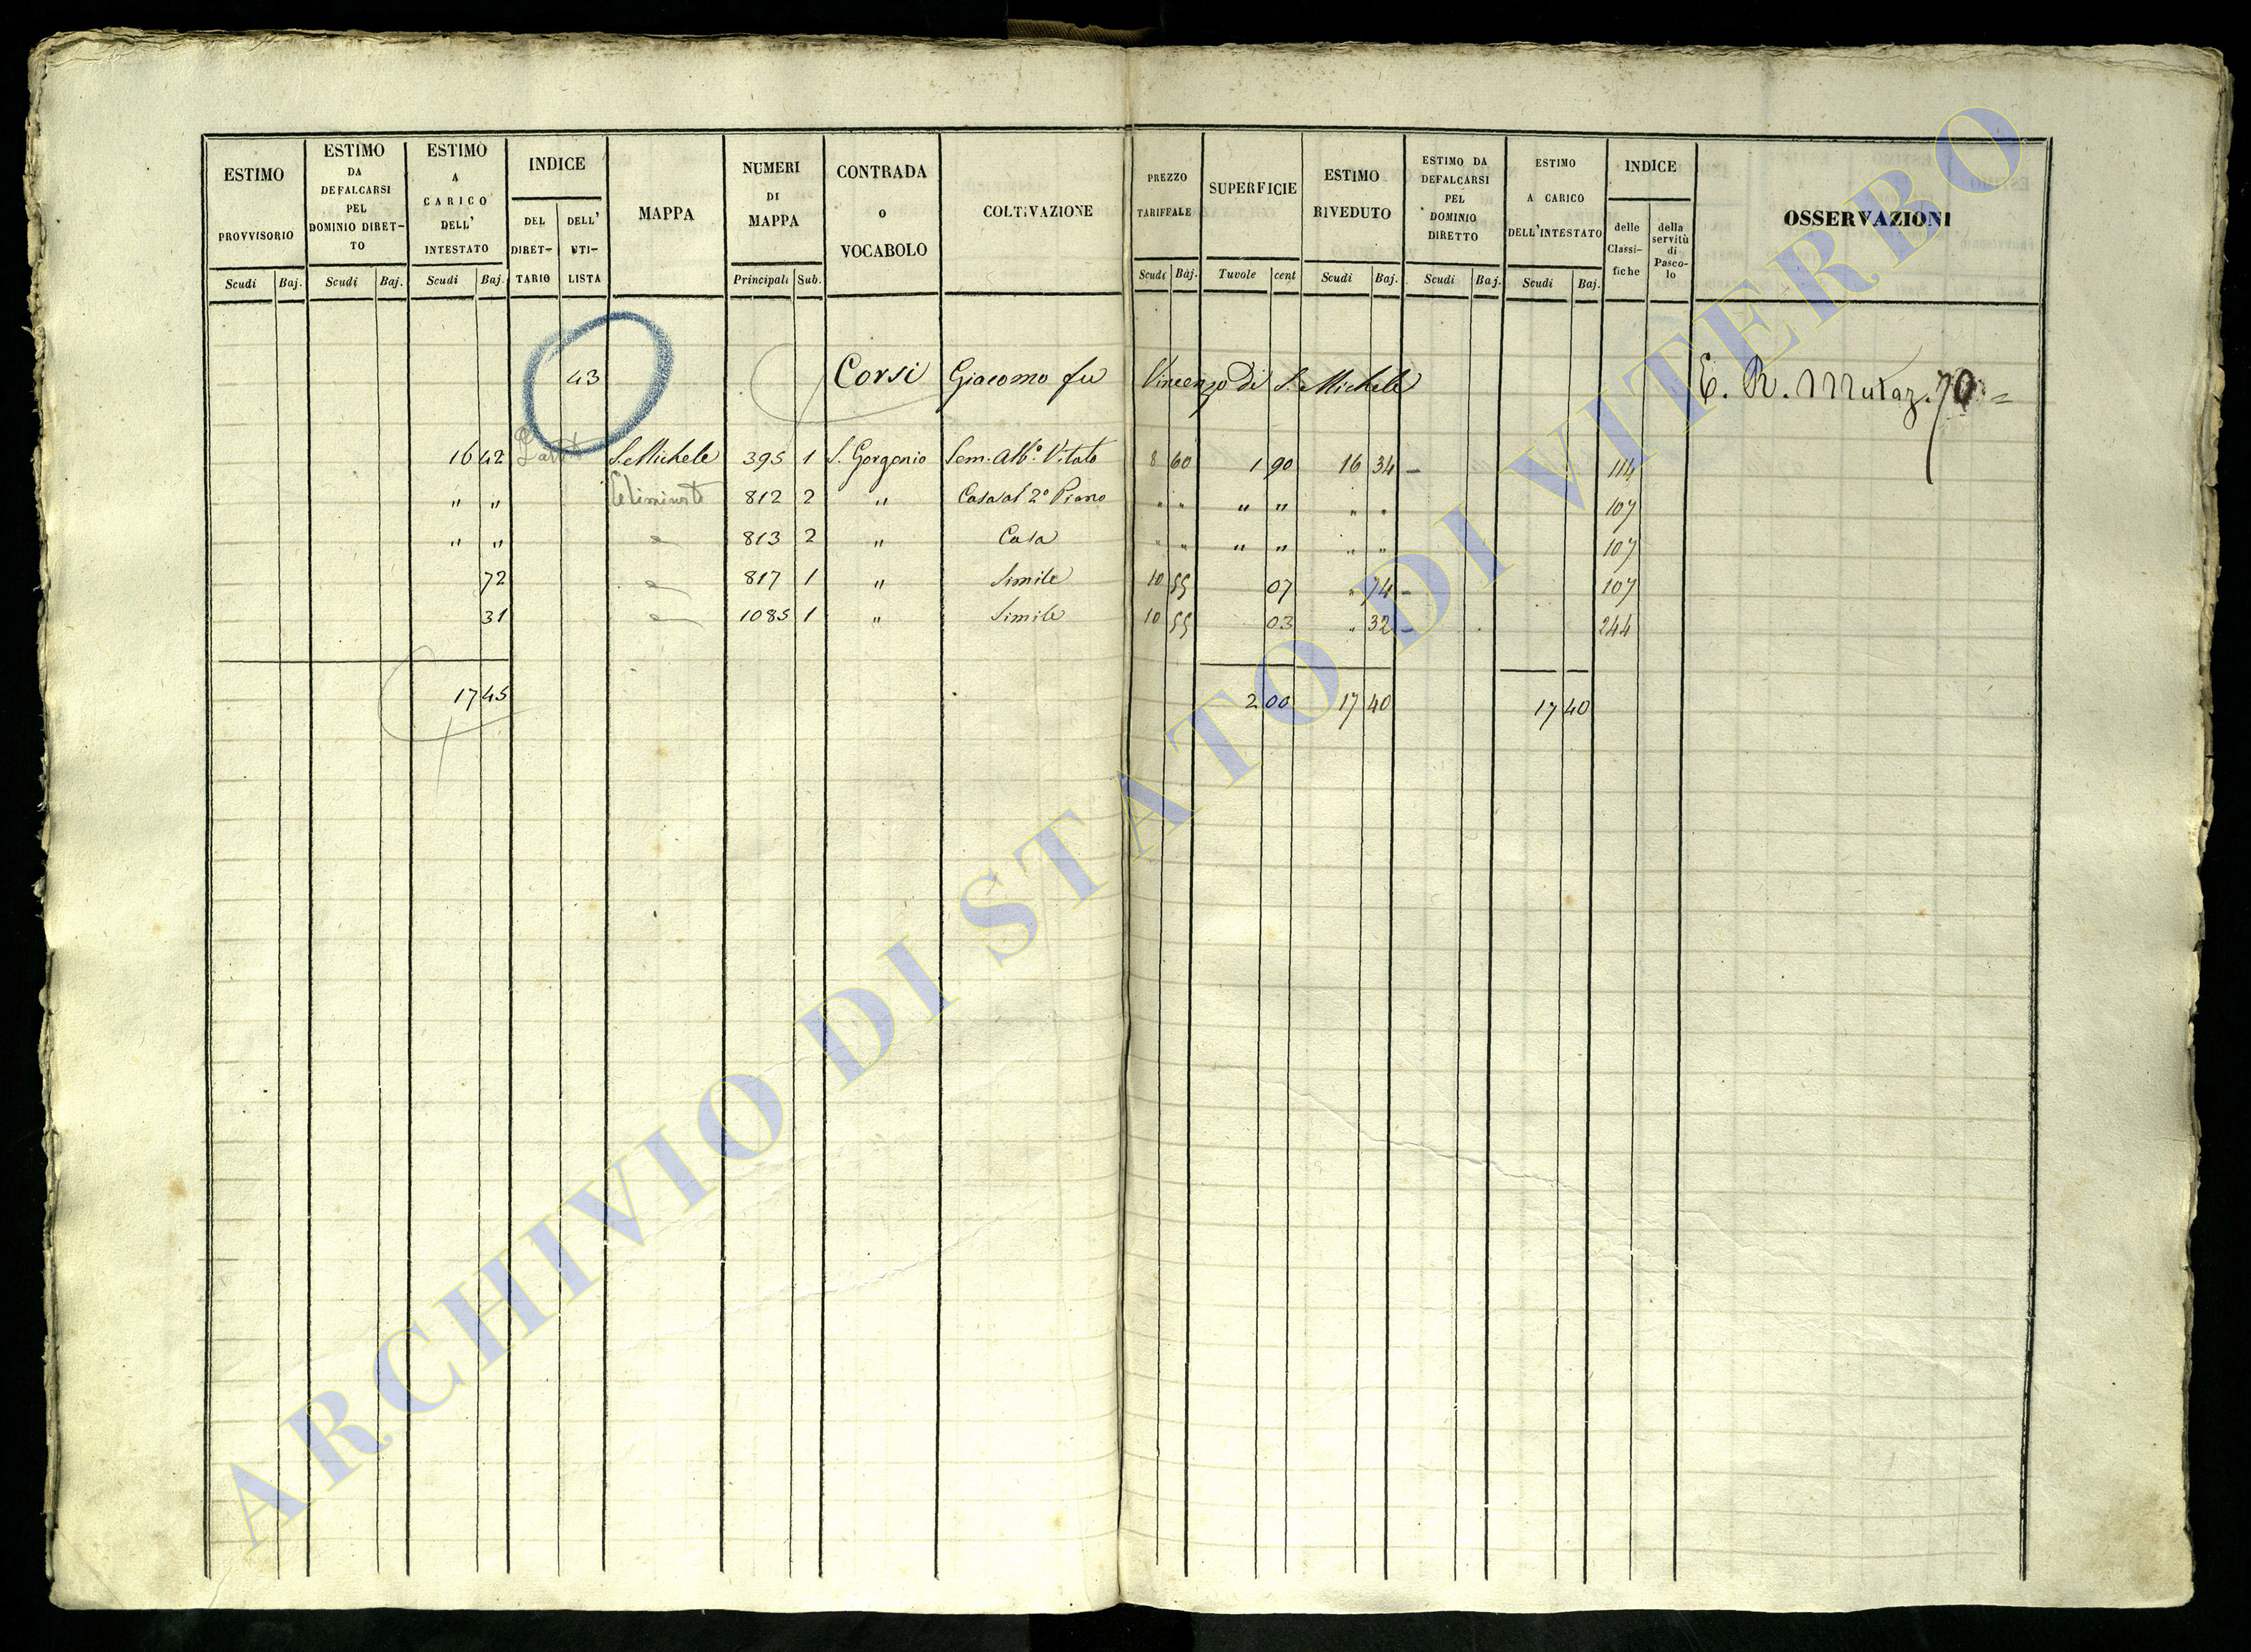 ESTIMO PROVVISORIO Scudi Baj.
ESTIMO DA DEFALCARSI PEL DOMINIO DIRET-TO Scudi Baj.
ESTIMO A CARICO DELL' INTESTATO Scudi Baj.
INDICE DEL DIRET-TARIO DELL' UTI-LISTA
MAPPA
NUMERI DI MAPPA Principali Sub.
CONTRADA O VOCABOLO
COLTIVAZIONE
PREZZO TARIFFALE Scudi Baj.
SUPERFICIE Tavole cent
ESTIMO RIVEDUTO Scudi Baj.
ESTIMO DA DEFALCARSI PEL DOMINIO DIRETTO Scudi Baj.
ESTIMO A CARICO DELL'INTESTATO Scudi Baj.
INDICE delle Classi-fiche della servitù di Pasco-lo
OSSERVAZIONI
43 Corsi Giacomo fu Vincenzo di S. Michele E. R. Mutaz. 70 =
16 42 S. Michele 395 1 S. Gorgonio Sem. Alb.o Vitato 8 60 1 90 16 34 - 114
" " 812 2 " Casa al 2° Piano " " " " " " 107
" " 813 2 " Casa " " " " " " 107
72 817 1 " Simile 10 55 07 " 74 - 107
31 1085 1 " Simile 10 55 03 " 32 - 244
17 45 2 00 17 40 17 40
ARCHIVIO DI STATO DI VITERBO